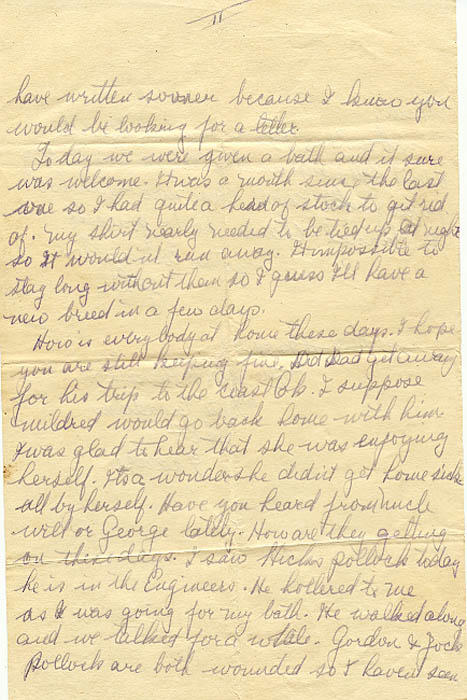 II
have written sooner because I know you
would be looking for a letter.
Today we were given a bath and it sure
was welcome. It was a month since the last
one so I had quite a head of stock to get rid
of. my shirt nearly needed to be tied up at night
so it would'nt run away. It impossible to
stay long without them so I guess I'll have a
new breed in a few days.
How is everybody at home these days. I hope
you are still keeping fine. Did Dad get away
for his trip to the coast Ok. I suppose
mildred would go back home with him
I was glad to hear that she was enjoying
herself. Its a wonder she did'nt get home sick
all by herself. Have you heard from uncle
will or George lately. How are they getting
on these days. I saw pollock today
he is in the Engineers. He hollered to me
as I was going for my bath. He walked along
and we talked for a while. Gordon & Jock
Pollock are both wounded so I haven seen